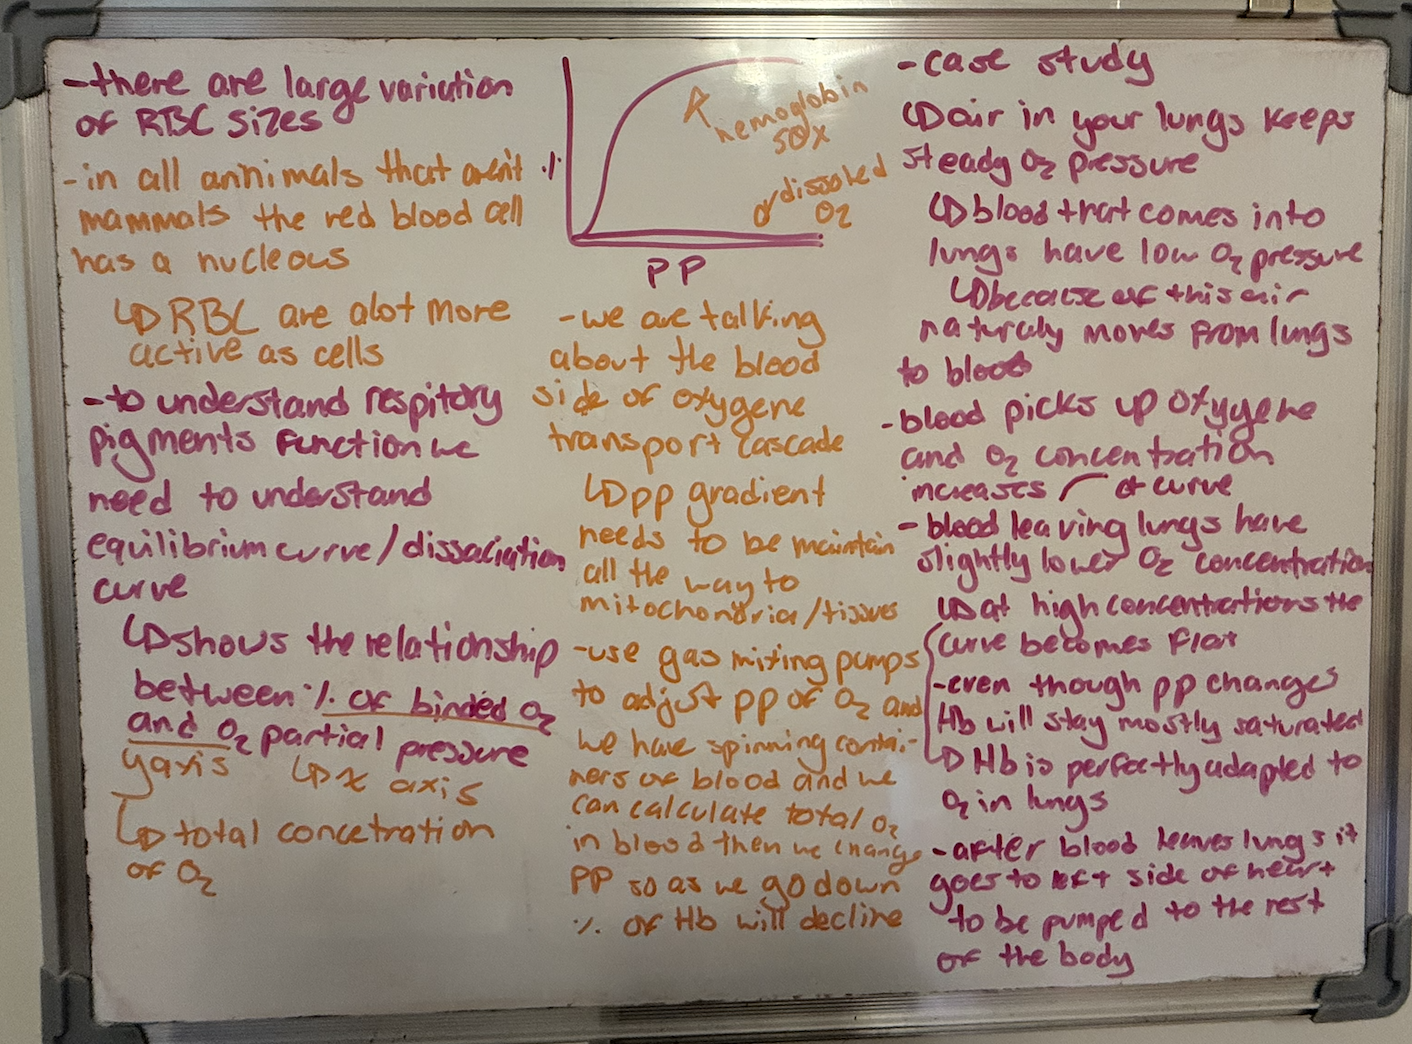 -there are large variation
of RBC sizes
-in all annimals that aren't
mammals the red blood cell
has a nucleous
↳RBC are alot more
active as cells
-to understand respitory
pigments function we
need to understand
equilibrium curve/dissaciation
curve
↳shows the relationship
between % of binded O₂
and O₂ partial pressure
yaxis ↳x axis
↳total concetration
of O₂
%
hemoglobin
50X
dissolved
O₂
PP
-we are talking
about the blood
side of oxygene
transport cascade
↳pp gradient
needs to be maintain
all the way to
mitochondria/tissues
-use gas mixing pumps
to adjust pp of O₂ and
we have spinning contai-
ners of blood and we
can calculate total O₂
in blood then we change
PP so as we go down
% of Hb will decline
-case study
↳air in your lungs keeps
steady O₂ pressure
↳blood that comes into
lungs have low O₂ pressure
↳because of this air
naturaly moves from lungs
to blood
-blood picks up oxygene
and O₂ concentration
increases of curve
-blood leaving lungs have
slightly lower O₂ concentration
↳at high concentrations the
curve becomes flat
-even though pp changes
Hb will stay mostly saturated
↳Hb is perfectly adapted to
O₂ in lungs
-after blood leaves lungs it
goes to left side of heart
to be pumped to the rest
of the body